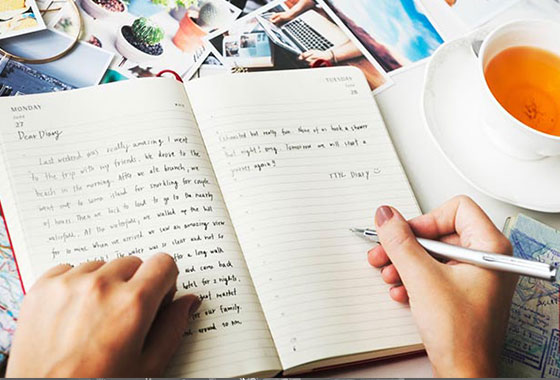 MONDAY
June
27
Dear Diary
Last weekend was really amazing. I went
to the trip with my friends. We drove to the
beach in the morning. After we ate brunch, we
went out to some island for snorkling for couple
of hours. Then we back to land to go to the nearby
waterfalls. At the waterfalls, we walked up the hill
for so mine when we arrived we saw an amazing view
The water was so clear and not so
after a long walk
and came back
hotel for 2 nights.
local market
for our family.
and around so on
TUESDAY
June
28
exhausted but really fun. None of us took a shower
that night! omg. Tomorrow we will start a
journey again!!
TTYL Diary ☺